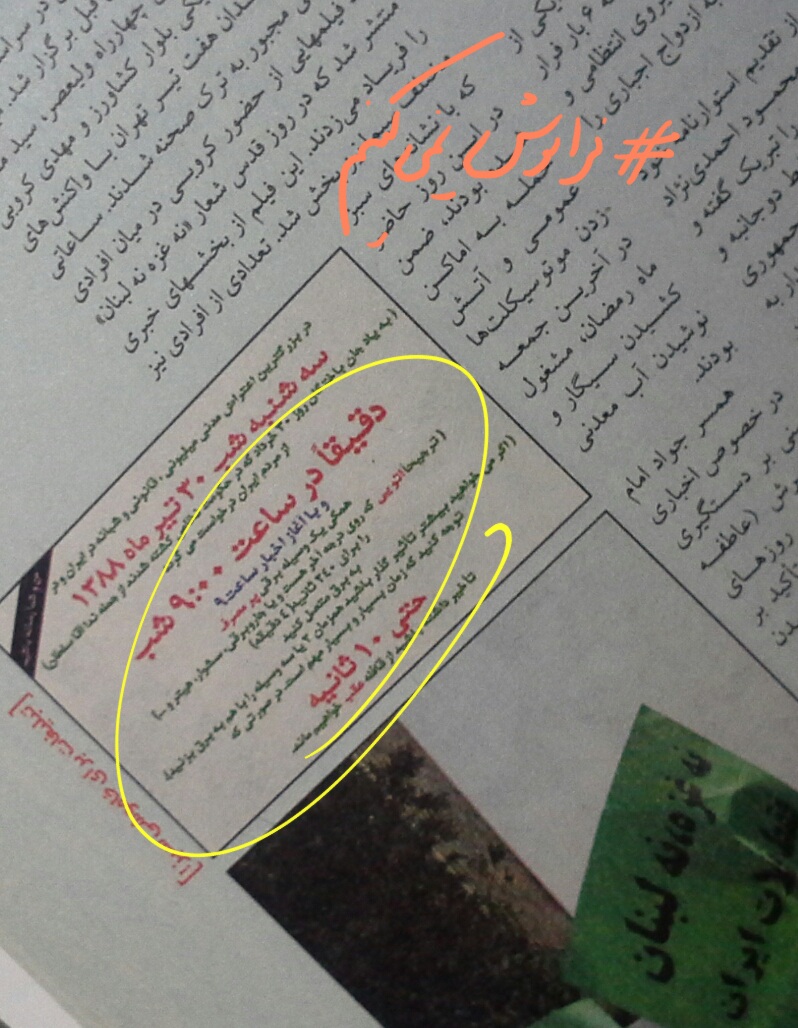 #فراموش_نمی‌کنیم
در سراسر
قبل برگزار شد.
چهارراه ولیعصر، سید
بلوار کشاورز و مهدی کروبی
هفت تیر تهران با واکنش‌های
مجبور به ترک صحنه شدند. ساعاتی
فیلمهایی از حضور کروبی در میان افرادی
منتشر شد که در روز قدس شعار «نه غزه نه لبنان»
را فریاد می‌زدند. این فیلم از بخشهای خبری
سیما پخش شد. تعدادی از افرادی نیز
که با نشانه‌های سبز
در این روز حاضر
بودند، ضمن
حمله به اماکن
عمومی و آتش
زدن موتورسیکلت‌ها
در آخرین جمعه
ماه رمضان، مشغول
کشیدن سیگار و
نوشیدن آب معدنی
بودند.
یکی از
۶ بار فرار
نیروی انتظامی و
به ازدواج اجباری را
از تقدیم استوارنامه خود
محمود احمدی‌نژاد
را تبریک گفته و
دوجانبه و
جمهوری
همسر جواد امام
در خصوص اخباری
بر دستگیری
(عاطفه
روزهای
تأکید بر
در بزرگترین اعتراض مدنی میلیونی، قانونی و شبانه در ایران و در
سه شنبه شب ۳۰ تیر ماه ۱۳۸۸
(به یاد جان باختگان روز ۳۰ خرداد که در
از مردم ایران درخواست می
دقیقاً در ساعت ۹:۰۰ شب
و با آغاز اخبار ساعت ۹
همگی یک وسیله برقی پر مصرف
(ترجیحا اتویی که روی درجه آخر هست و یا جاروبرقی، سشوار، هیتر و ...)
را برای ۲۴۰ ثانیه (۴ دقیقه)
به برق متصل کنید
(اگر می خواهید بیشتر تأثیر گذار باشید همزمان ۲ یا سه وسیله را با هم به برق بزنید).
توجه کنید که زمان بسیار و بسیار مهم است. در صورتی که
حتی ۱۰ ثانیه
تأخیر داشته باشید از قافله عقب خواهیم ماند.
[تبلیغات برای خاموشی
نه غزه نه لبنان
ایران